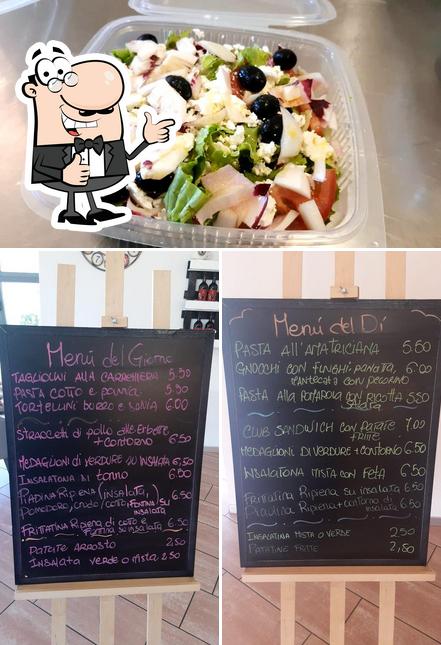 Menú del Giorno
TAGLIOLINI ALLA CARRETTIERA 5.50
PASTA COTTO E PANNA 5.50
TORTELLINI BURRO E SALVIA 6.00
STRACCETTI DI POLLO ALLE ERBETTE
+ CONTORNO 6.50
MEDAGLIONI DI VERDURE SU INSALATA 6,50
INSALATONA DI TONNO 6.50
PIADINA RIPIENA (INSALATA,
POMODORO, CRUDO / COTTO, 6.50
INSALATA
FRITTATINA RIPIENA DI COTTO E 6.50
SU INSALATA
PATATE ARROSTO 2,50
INSALATA VERDE O MISTA 2.50
Menú del Dí
PASTA ALL'AMATRICIANA 5.50
GNOCCHI CON FUNGHI PANCETTA, 6.00
MANTECATI CON PECORINO
PASTA ALLA CON RICOTTA 5.50
SALATA
CLUB SANDWICH CON PATATE 7.00
FRITTE
MEDAGLIONI DI VERDURE + CONTORNO 6.50
INSALATONA MISTA CON FETA 6.50
FRITTATINA RIPIENA SU INSALATA 6.50
PIADINA RIPIENA + CONTORNO DI 6.50
INSALATA
INSALATINA MISTA O VERDE 2.50
PATATINE FRITTE 2,50